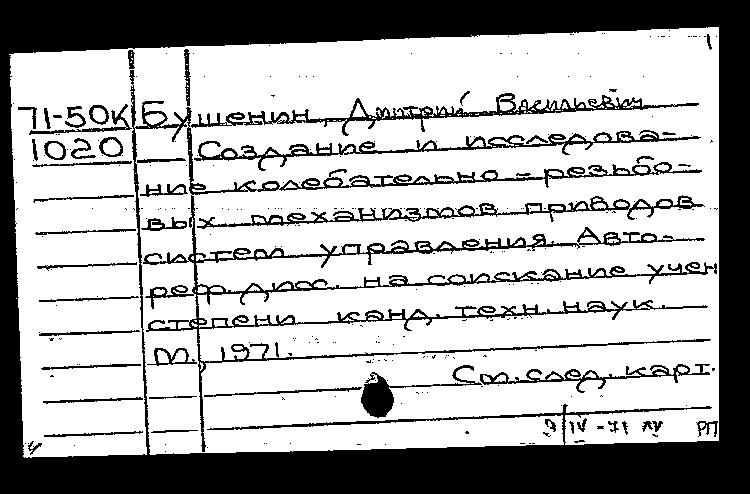 71-50К Бушенин, Дмитрий Васильевич
1020 Создание и исследова-
ние колебательно-резьбо-
вых механизмов приводов
систем управления. Авто-
реф. дисс. на соискание учен
степени канд. техн. наук.
М., 1971.
См. след. карт.
IV-71 РП